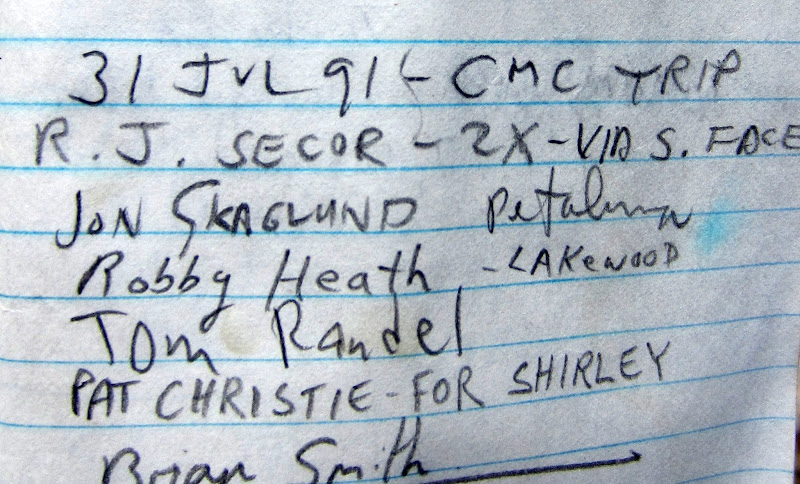 31 JUL 91 - CMC TRIP
R. J. SECOR - 2X - VIA S. FACE
JON SKAGLUND Petaluma
Robby Heath - LAKEWOOD
Tom Randel
PAT CHRISTIE - FOR SHIRLEY
Brian Smith